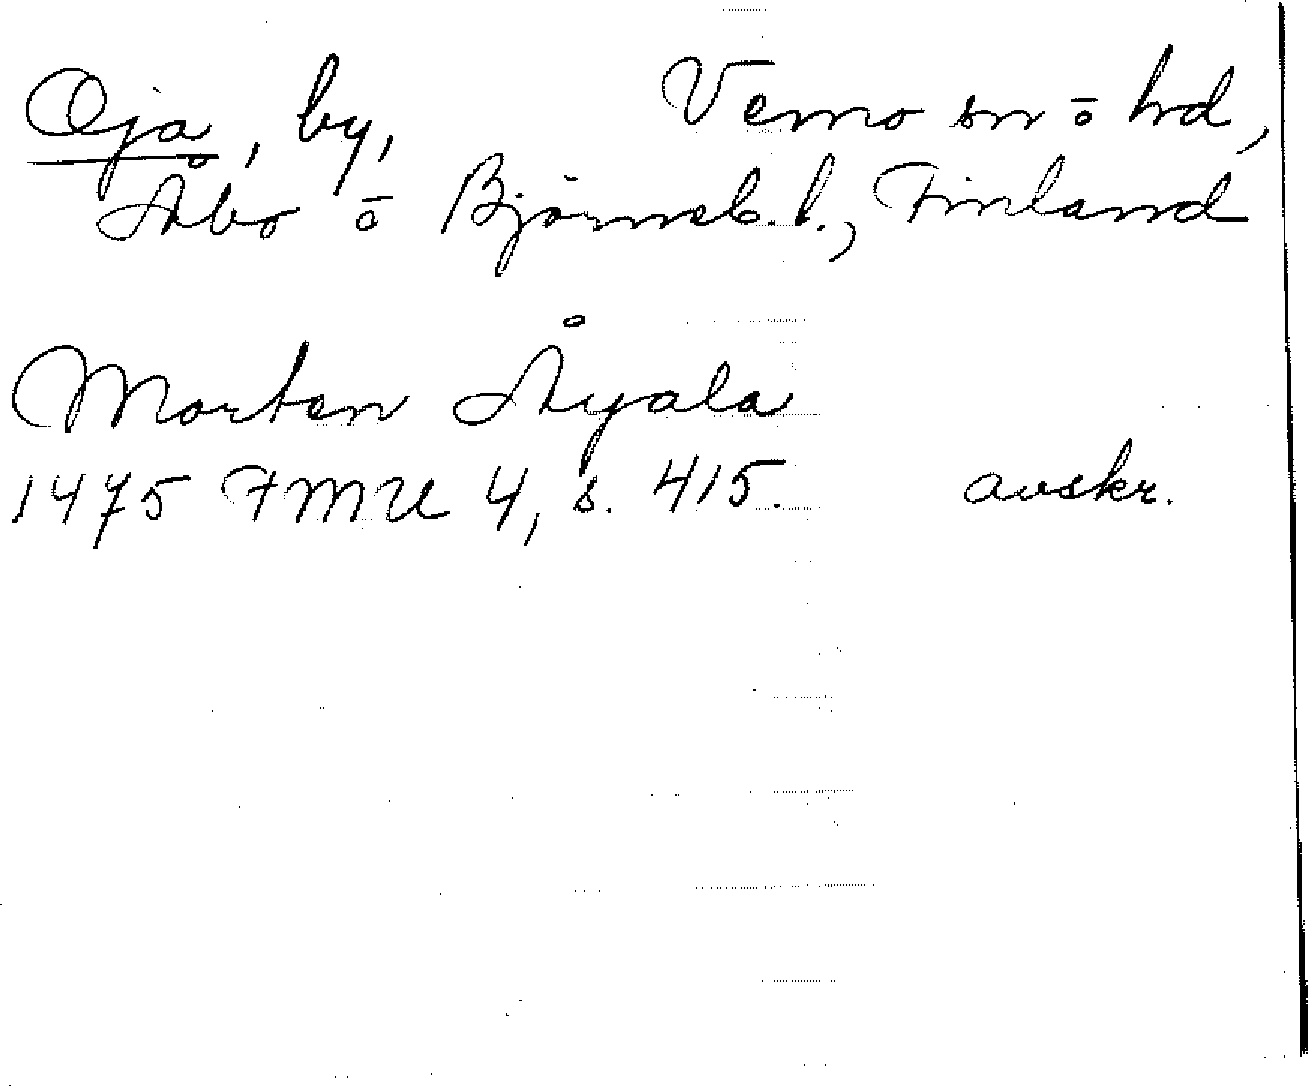 Oja, by, Vemo sn ō hd,
Åbo ō Björneb. l., Finland
Morten Åyala
1475 FMU 4, s. 415. avskr.